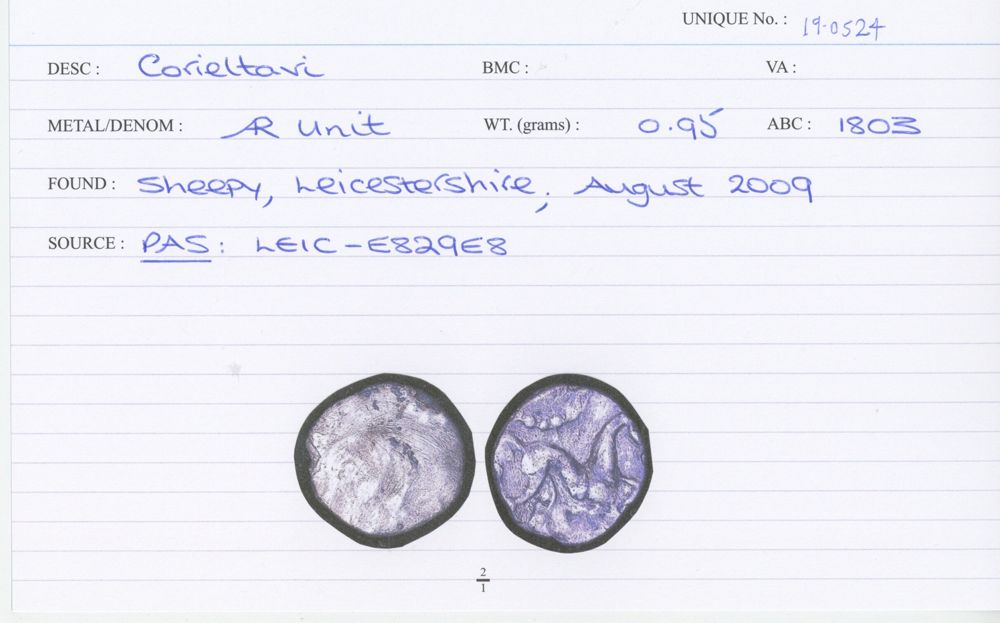 UNIQUE No. : 19-0524
DESC : Corieltavi BMC : VA :
METAL/DENOM : AR Unit WT. (grams) : 0.95 ABC : 1803
FOUND : Sheepy, Leicestershire, August 2009
SOURCE : PAS: LEIC-E829E8
2
1